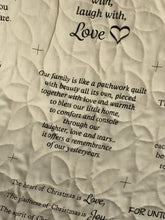 with,
laugh with,
Love
Our family is like a patchwork quilt
with beauty all its own, pieced
together with love and warmth
to bless our little home,
to comfort and console
through our
laughter, love and tears...
it offers a remembrance
of our yesteryears.
The heart of Christmas is Love,
The gladness of Christmas is
The spirit of Christmas is Joy
FOR UNT